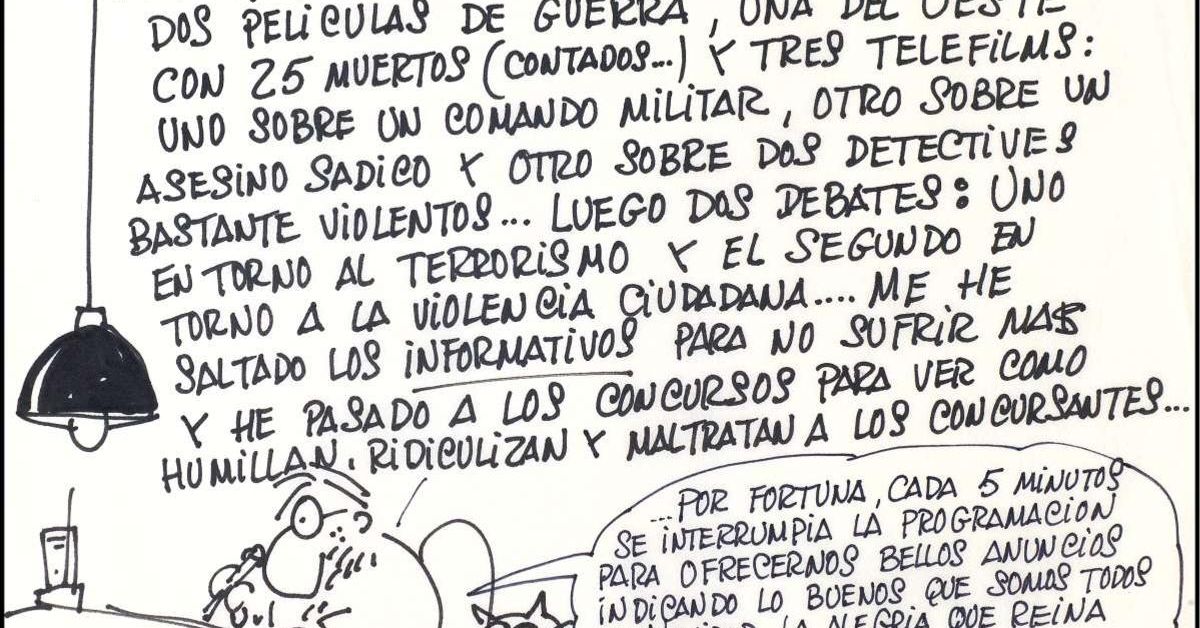 DOS PELiCULAS DE GUERRA, UNA DEL OESTE
CON 25 MUERTOS (CONTADOS...) Y TRES TELEFiLMS:
UNO SOBRE UN COMANDO MiLiTAR, OTRO SOBRE UN
ASESiNO SADiCO Y OTRO SOBRE DOS DETECTiVES
BASTANTE ViOLENTOS... LUEGO DOS DEBATES: UNO
EN TORNO AL TERRORiSMO Y EL SEGUNDO EN
TORNO A LA ViOLENCiA CiUDADANA.... ME HE
SALTADO LOS iNFORMATiVOS PARA NO SUFRiR MAS
Y HE PASADO A LOS CONCURSOS PARA VER COMO
HUMiLLAN, RiDiCULiZAN Y MALTRATAN A LOS CONCURSANTES...
...POR FORTUNA, CADA 5 MiNUTOS
SE iNTERRUMPiA LA PROGRAMACiON
PARA OFRECERNOS BELLOS ANUNCiOS
iNDiCANDO LO BUENOS QUE SOMOS TODOS
LA ALEGRiA QUE REiNA